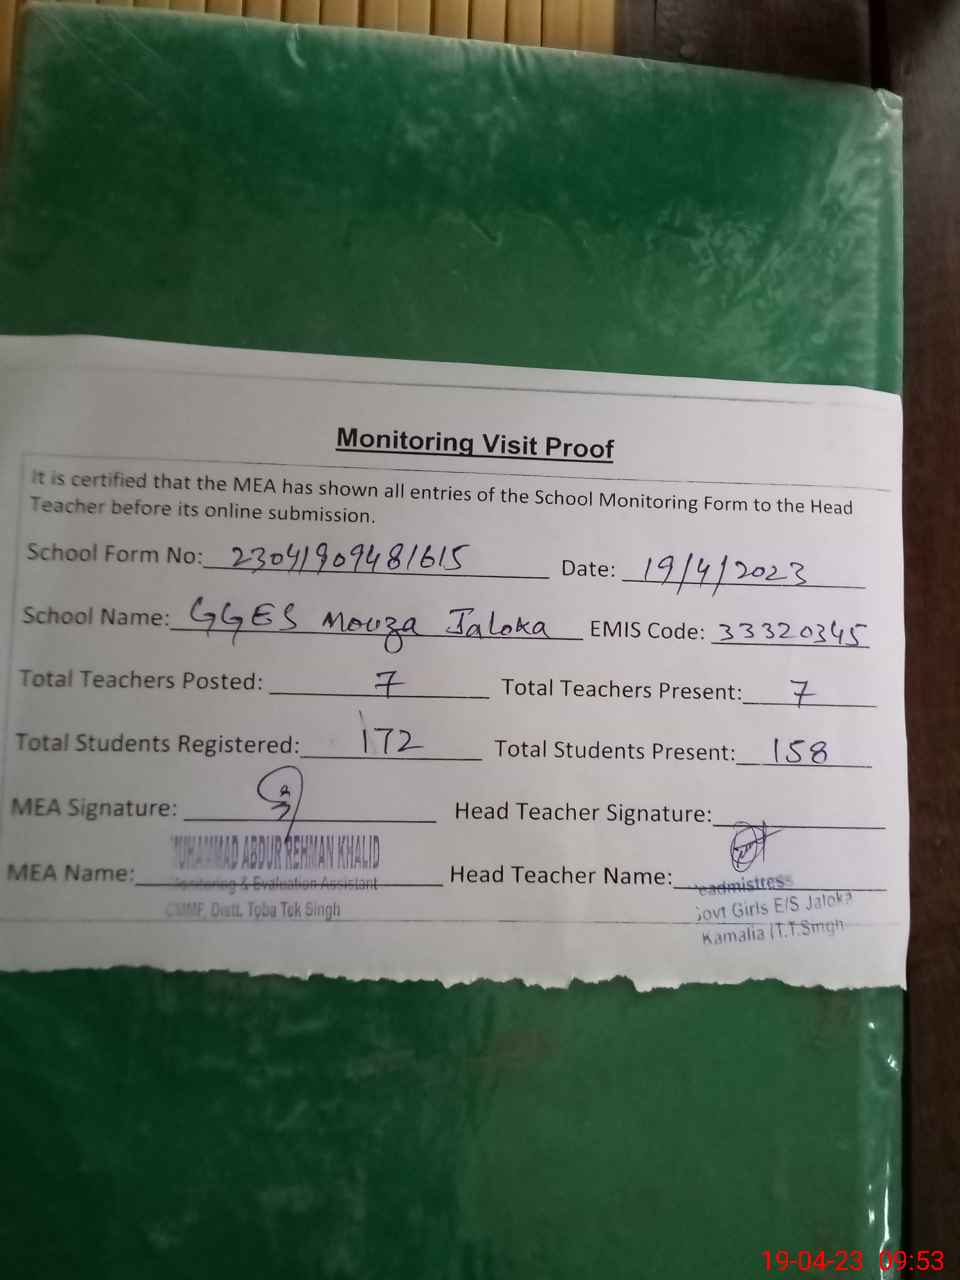 Monitoring Visit Proof
It is certified that the MEA has shown all entries of the School Monitoring Form to the Head
Teacher before its online submission.
School Form No: 23041909481615 Date: 19/4/2023
School Name: GGES Mouza Jaloka EMIS Code: 33320345
Total Teachers Posted: 7 Total Teachers Present: 7
Total Students Registered: 172 Total Students Present: 158
MEA Signature: Head Teacher Signature:
MUHAMMAD ABDUR REHMAN KHALID
MEA Name: Head Teacher Name:
Monitoring & Evaluation Assistant
Headmistress
CMMF, Distt. Toba Tek Singh
Govt Girls E/S Jaloka
Kamalia (T.T.Singh
19-04-23 09:53